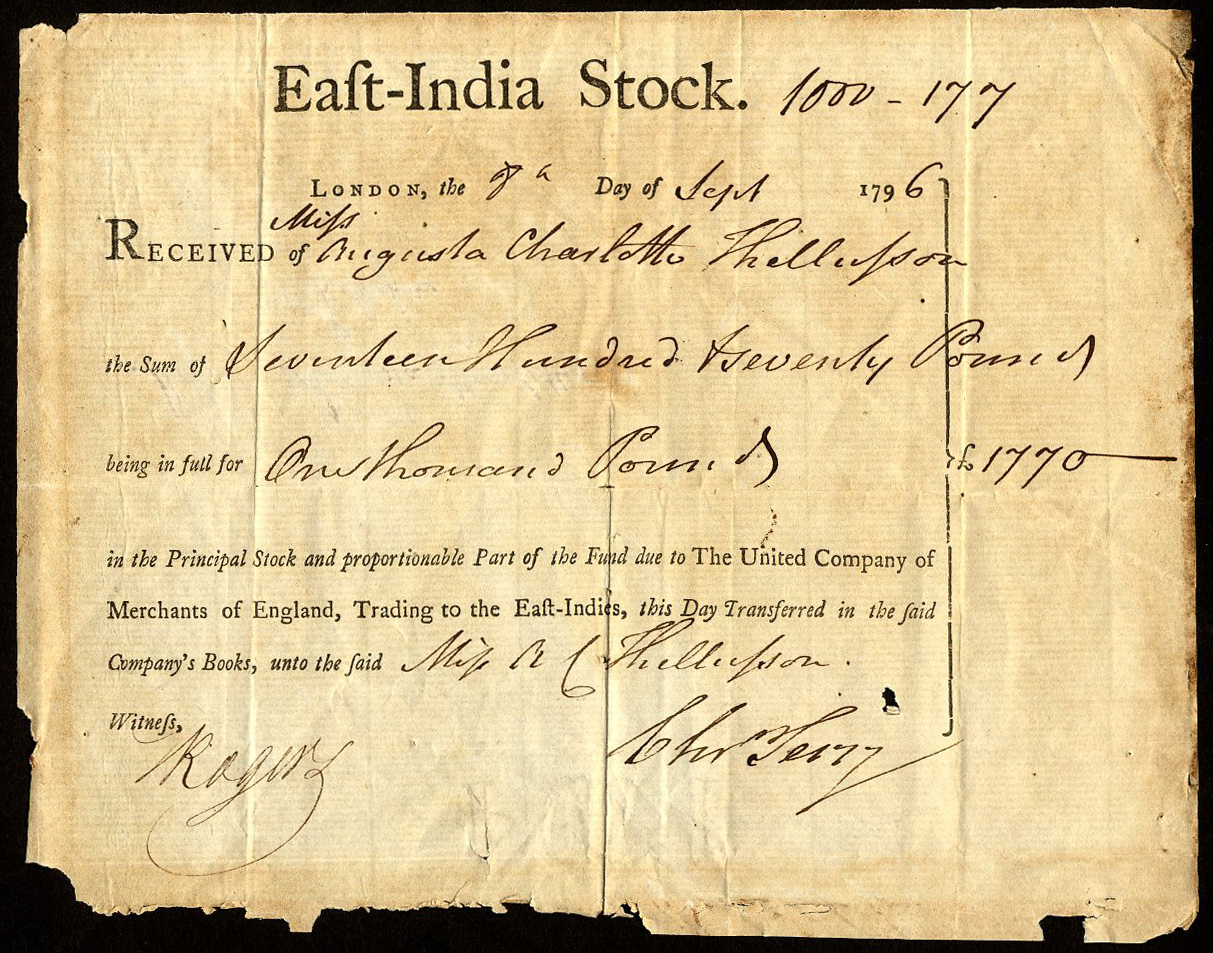 Eaſt-India Stock. 1000 - 177
LONDON, the 8th Day of Sept 1796
Miſs
RECEIVED of Augusta Charlotte Thelluſson
the Sum of Seventeen Hundred & seventy Pounds
being in full for One thousand Pounds £1770
in the Principal Stock and proportionable Part of the Fund due to The United Company of
Merchants of England, Trading to the Eaſt-Indies, this Day Transferred in the ſaid
Company's Books, unto the ſaid Miſs A C Thelluſson.
Witneſs,
Rogers Chr Terry